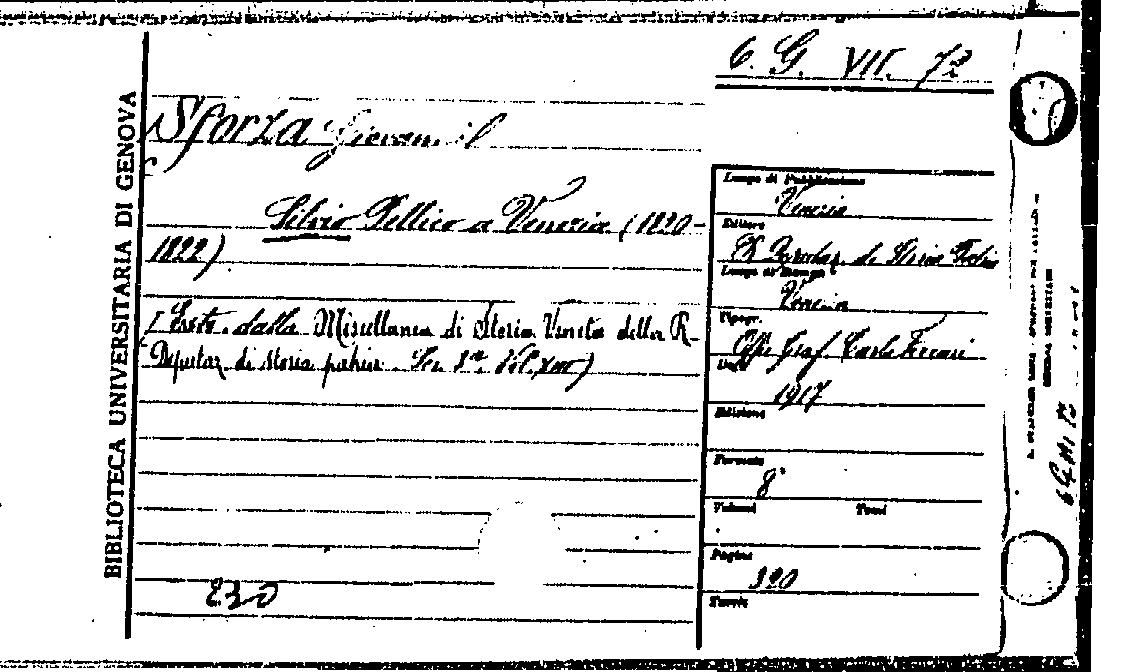 6. G. VII. 72
BIBLIOTECA UNIVERSITARIA DI GENOVA
Sforza Giovanni
Silvio Pellico a Venezia (1820-
1822)
(Estr. dalla Miscellanea di Storia Veneta della R.
Deputaz. di storia patria. Ser. 3ª Vol. XIII)
230
Luogo di Pubblicazione
Venezia
Editore
Luogo di Stampa
Venezia
Tipogr.
Off. Graf. Carlo Ferrari
Data
1917
Edizione
Formato
8°
Volumi Tomi
Pagine
320
Tavole
6 G VII 72